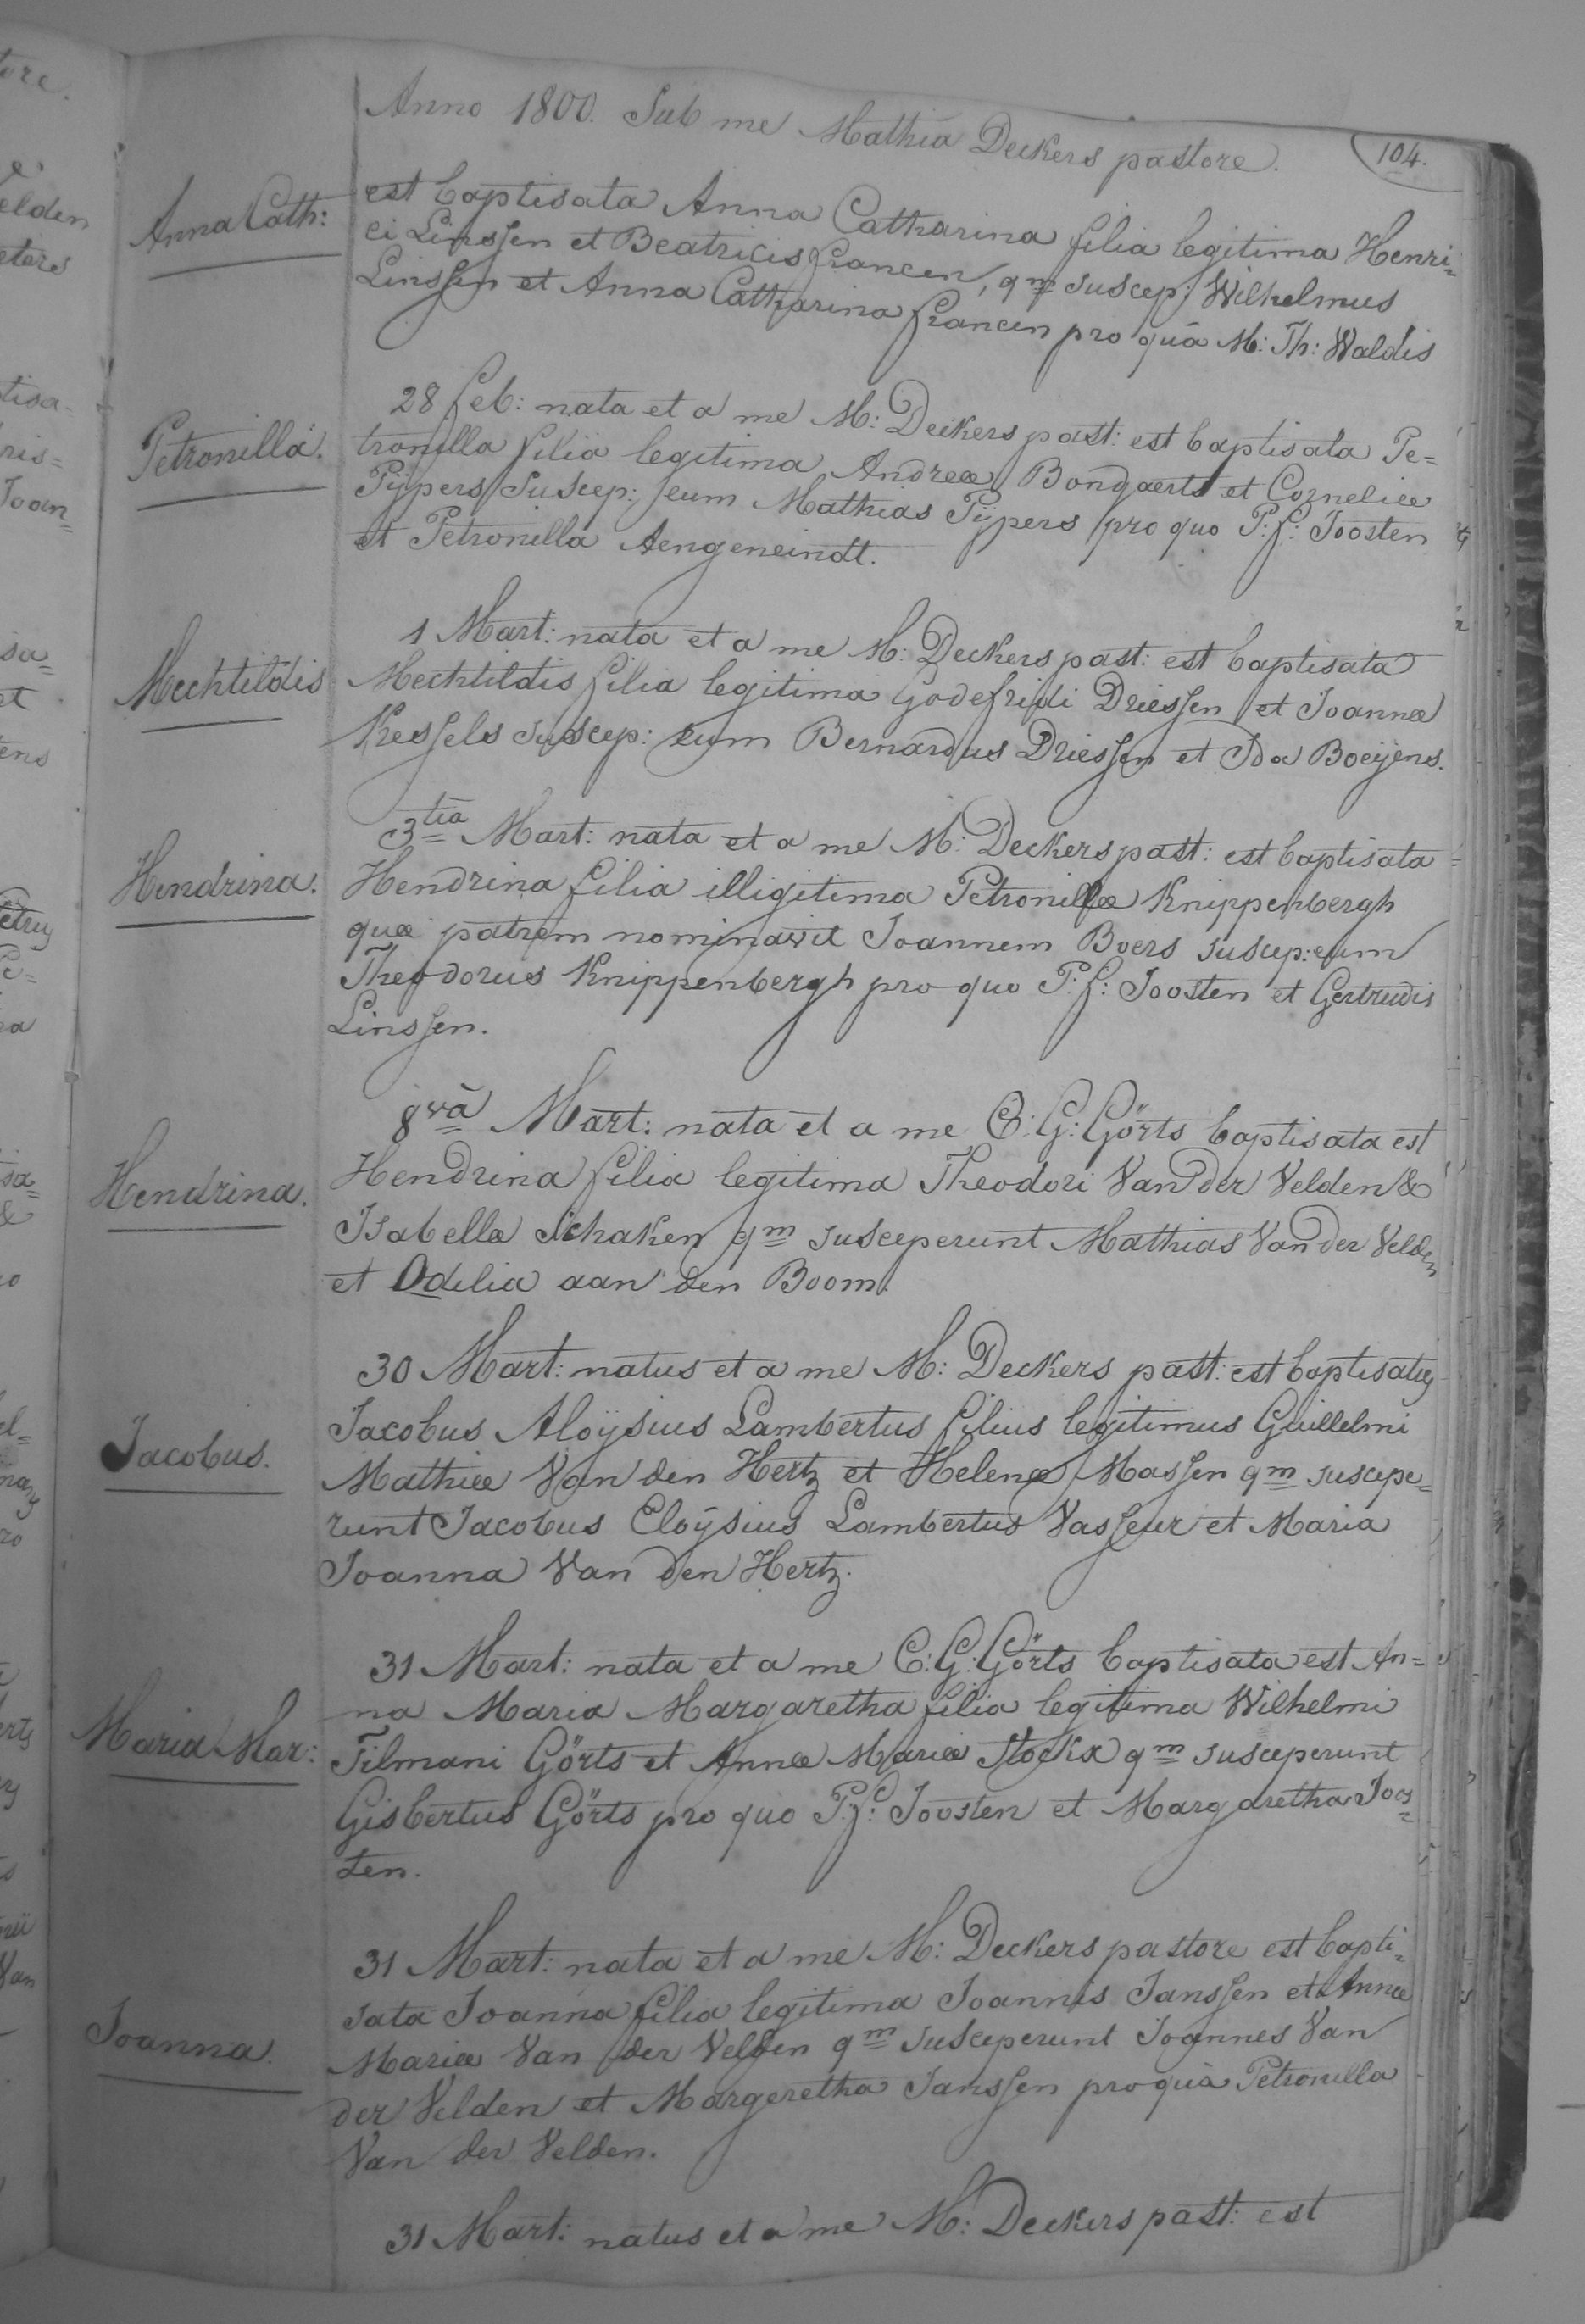 Anno 1800. Sub me Mathia Deckers pastore.
104.
Anna Cath:
est baptisata Anna Catharina filia legitima Henri=
ci Linssen et Beatricis francen, qm suscep: Wilhelmus
Linssen et Anna Catharina francen pro quâ M: Th: Waldis
Petronilla.
28 feb: nata et a me M: Deckers past: est baptisata Pe=
tronilla filia legitima Andreæ Bongaerts et Corneliæ
Pÿpers Suscep: eum Mathias Pÿpers pro quo P: f: Joosten
et Petronilla Aengeneindt.
Mechtildis
1 Mart: nata et a me M: Deckers past: est baptisata
Mechtildis filia legitima Godefridi Driessen et Joannæ
Kessels suscep: eum Bernardus Driessen et Ida Boeÿens.
Hendrina.
3tia Mart: nata et a me M: Deckers past: est baptisata
Hendrina filia illigitima Petronillæ Knippenbergh
quæ patrem nominavit Joannem Boers suscep: eum
Theodorus Knippenbergh pro quo P: f: Joosten et Gertrudis
Linssen.
Hendrina.
8va Mart: nata et a me C: G: Görts baptisata est
Hendrina filia legitima Theodori Van der Velden &
Isabella Schaken qm susceperunt Mathias Van der Velden
et Odilia aan den Boom.
Jacobus.
30 Mart: natus et a me M: Deckers past: est baptisatus
Jacobus Aloÿsius Lambertus filius legitimus Guillelmi
Mathiæ Van den Hertz et Helenæ Massen qm suscepe=
runt Jacobus Eloÿsius Lambertus Vasseur et Maria
Joanna Van den Hertz.
Maria Mar:
31 Mart: nata et a me C: G: Görts baptisata est An=
na Maria Margaretha filia legitima Wilhelmi
Tilmani Görts et Annæ Mariæ Stockx qm susceperunt
Gisbertus Görts pro quo P: f: Joosten et Margaretha Joos=
ten.
Joanna.
31 Mart: nata et a me M: Deckers pastore est bapti=
sata Joanna filia legitima Joannis Janssen et Annæ
Mariæ Van der Velden qm susceperunt Joannes Van
der Velden et Margeretha Janssen pro quâ Petronilla
Van der Velden.
31 Mart: natus et a me M: Deckers past: est